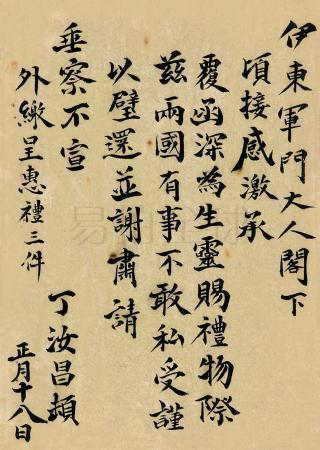 伊東軍門大人閣下
頃接感激承
覆函深為生靈賜禮物際
茲兩國有事不敢私受謹
以璧還並謝肅請
垂察不宣
外繳呈惠禮三件
丁汝昌頓
正月十八日